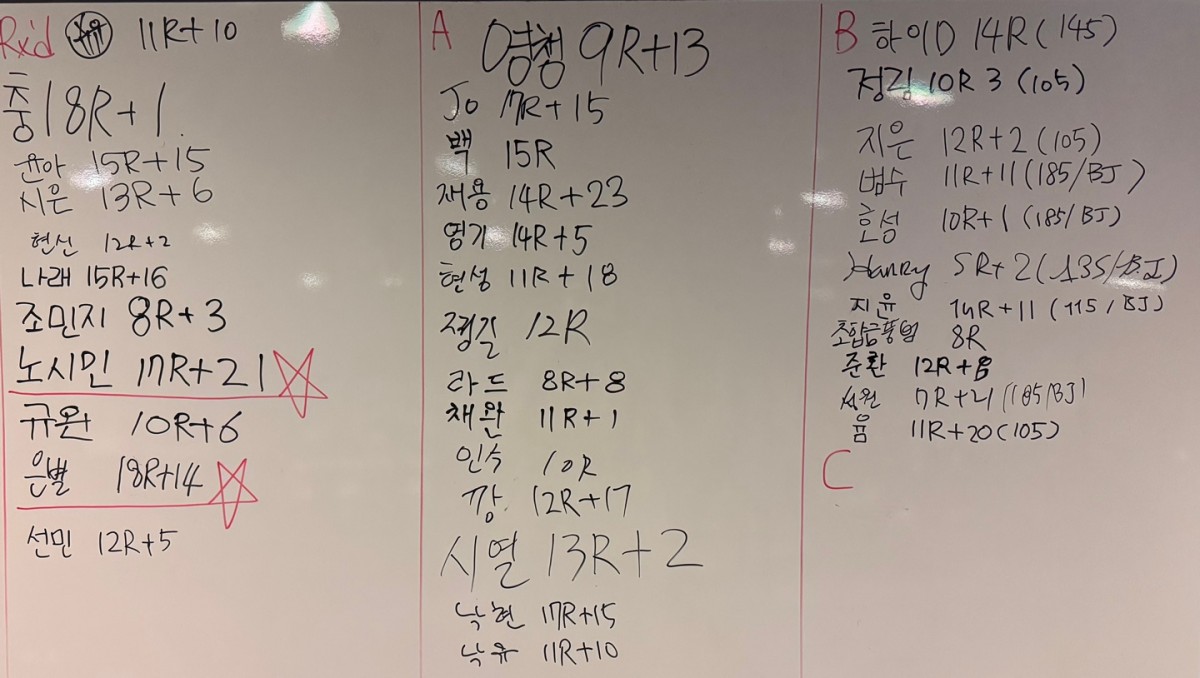 Rx'd 11R+10
충 18R+1
윤아 15R+15
시은 13R+6
현신 12R+2
나래 15R+16
조민지 8R+3
노시민 17R+21
규완 10R+6
은별 18R+14
선민 12R+5
A 영챙 9R+13
Jo 17R+15
백 15R
재용 14R+23
영기 14R+5
현성 11R+18
정길 12R
라드 8R+8
채완 11R+1
인숙 10R
깡 12R+17
시열 13R+2
낙현 17R+15
낙유 11R+10
B 하이D 14R(145)
정김 10R 3 (105)
지은 12R+2(105)
범수 11R+11(185/BJ)
호성 10R+1(185/BJ)
Hanry 5R+2(135/BJ)
지윤 14R+11(115/BJ)
8R
준환 12R+8
서원 7R+21(185/BJ)
윰 11R+20(105)
C